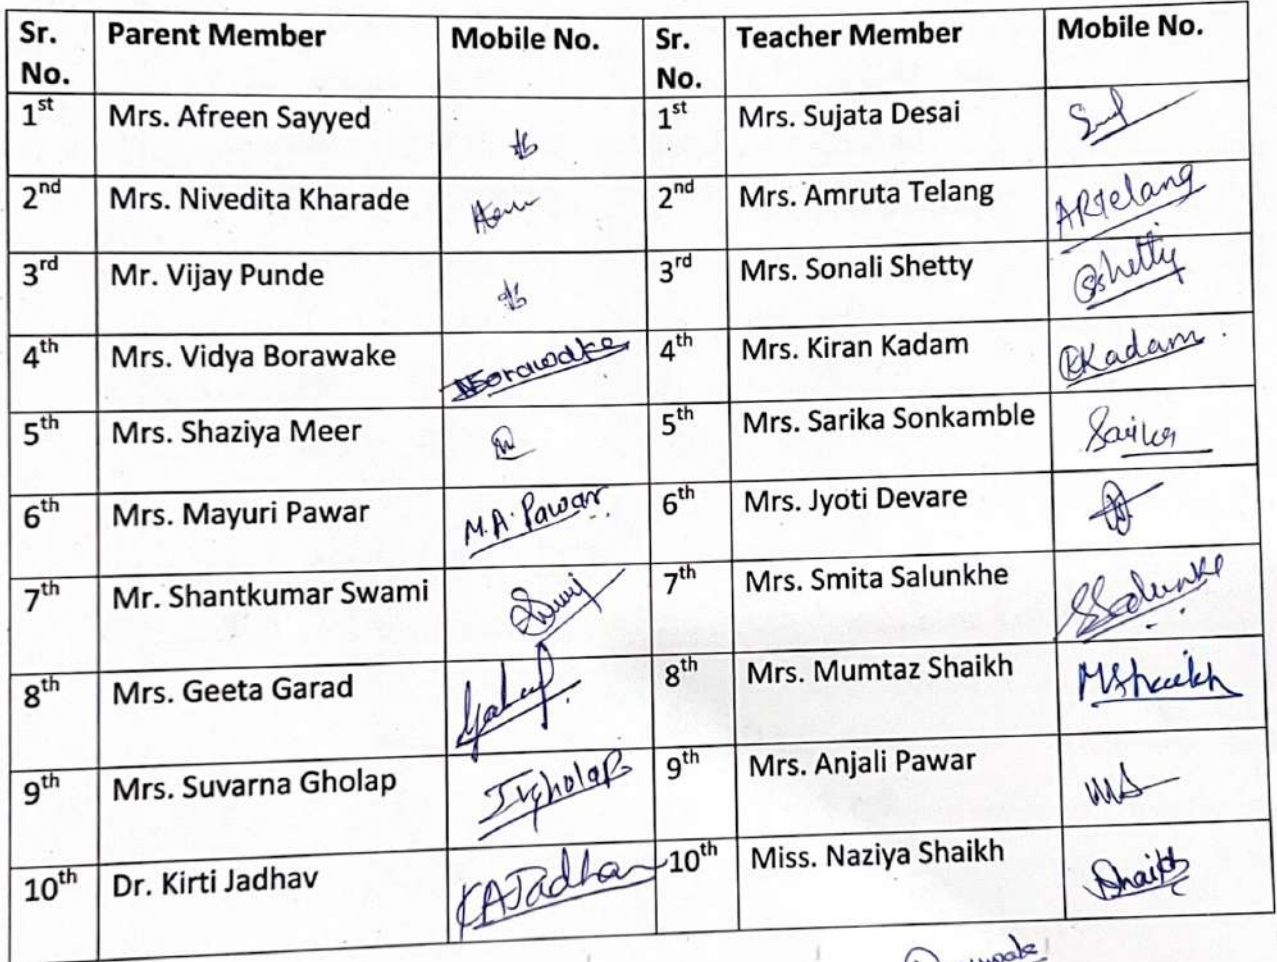 Sr. No. Parent Member Mobile No. Sr. No. Teacher Member Mobile No.
1st Mrs. Afreen Sayyed 1st Mrs. Sujata Desai
2nd Mrs. Nivedita Kharade 2nd Mrs. Amruta Telang ARTelang
3rd Mr. Vijay Punde 3rd Mrs. Sonali Shetty Sshetty
4th Mrs. Vidya Borawake Borawake 4th Mrs. Kiran Kadam Kadam
5th Mrs. Shaziya Meer 5th Mrs. Sarika Sonkamble Sarika
6th Mrs. Mayuri Pawar M.A. Pawar 6th Mrs. Jyoti Devare
7th Mr. Shantkumar Swami 7th Mrs. Smita Salunkhe SSalunke
8th Mrs. Geeta Garad 8th Mrs. Mumtaz Shaikh MShaikh
9th Mrs. Suvarna Gholap Gholap 9th Mrs. Anjali Pawar
10th Dr. Kirti Jadhav KAJadhav 10th Miss. Naziya Shaikh Shaikh